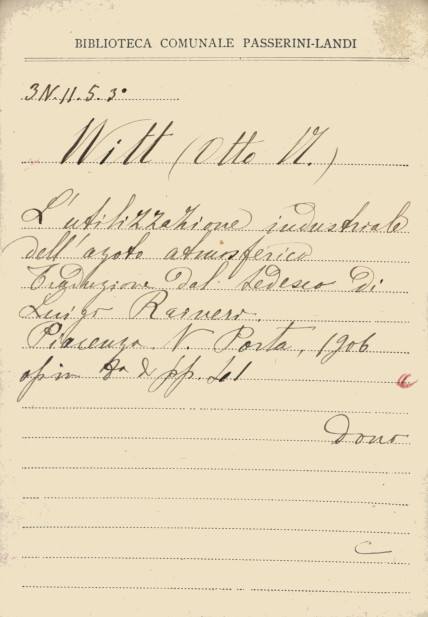 BIBLIOTECA COMUNALE PASSERINI-LANDI
3.N.11.5.3°
Witt (Otto N.)
L'utilizzazione industriale
dell'azoto atmosferico
Traduzione dal tedesco di
Luigi Raineri.
Piacenza V. Porta, 1906
opin 8° di pp. 41
Dono